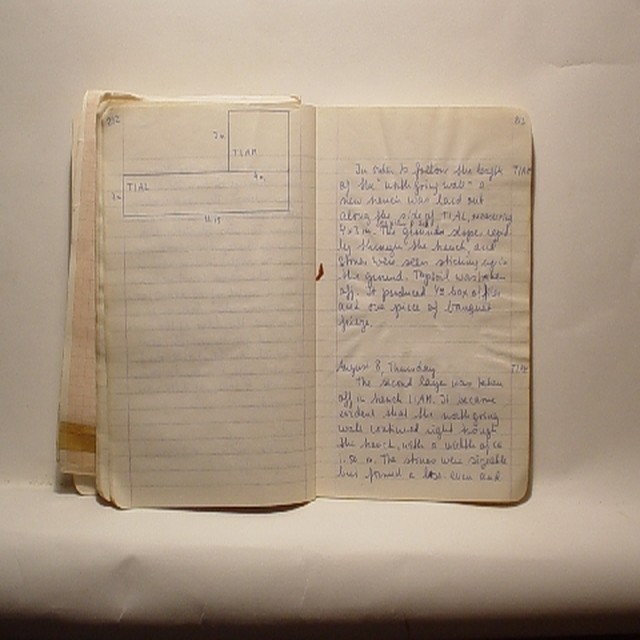 3m
T1AM
4m
T1AL
3m
In order to follow the length T1AM
of the "north going wall" a
new trench was laid out
along the side of T1AL, measuring
4x3 m. The grounds slope
through the trench, and
stones were seen sticking up in
the ground. Topsoil was taken
off. It produced 1/2 box of
and one piece of banquet
frieze.
August 8, Thursday
The second layer was taken
off in trench T1AM. It became
evident that the north going
wall continued right through
the trench, with a width of ca
1.50 m. The stones were sizeable
but formed a even and